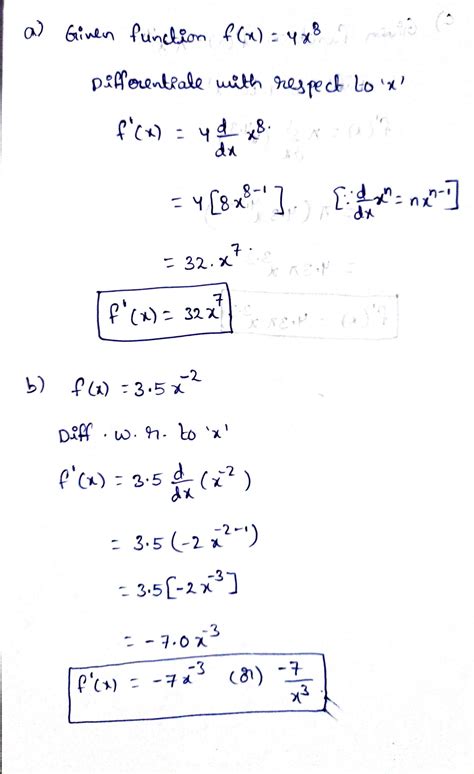 a) Given function f(x) = 4x⁸
Differentiate with respect to 'x'
f'(x) = 4 d/dx x⁸.
= 4[8x⁸⁻¹] [∵ d/dx xⁿ = nxⁿ⁻¹]
= 32.x⁷.
f'(x) = 32x⁷
b) f(x) = 3.5x⁻²
Diff. w. r. to 'x'
f'(x) = 3.5 d/dx (x⁻²)
= 3.5(-2x⁻²⁻¹)
= 3.5[-2x⁻³]
= -7.0x⁻³
f'(x) = -7x⁻³ (or) -7/x³